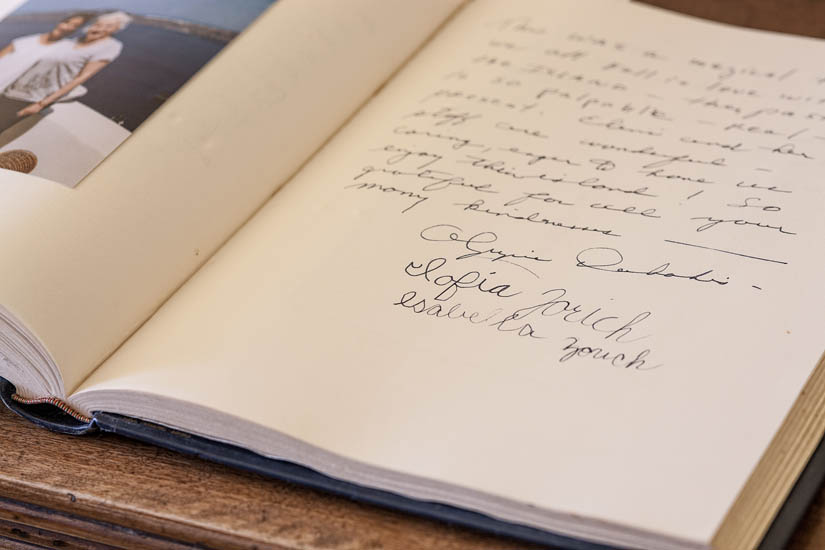 This was a magical
we all fell in love with
the Island - the
is so palpable - real,
present. and her
staff are wonderful -
caring, eager to have us
enjoy this island! So
grateful for all your
many kindnesses
Olympia
Sofia Yorich
Isabella Yorich